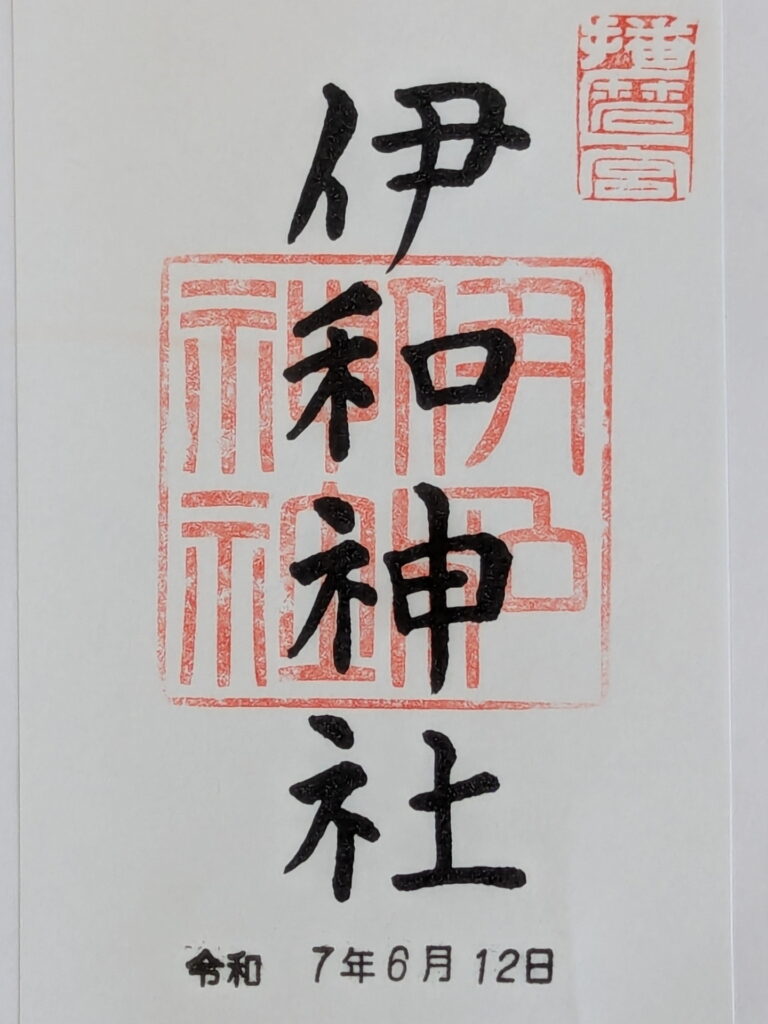 播磨一宮
伊和神社
伊和神社
令和 7年6月12日